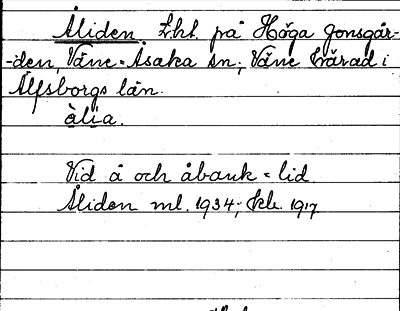 Åliden. Lht. på Höga Jonsgår-
-den, Väne-Åsaka sn; Väne härad i
Älfsborgs län.
àlia.
Vid å och åbank = lid.
Åliden ml. 1934; kk. 1917